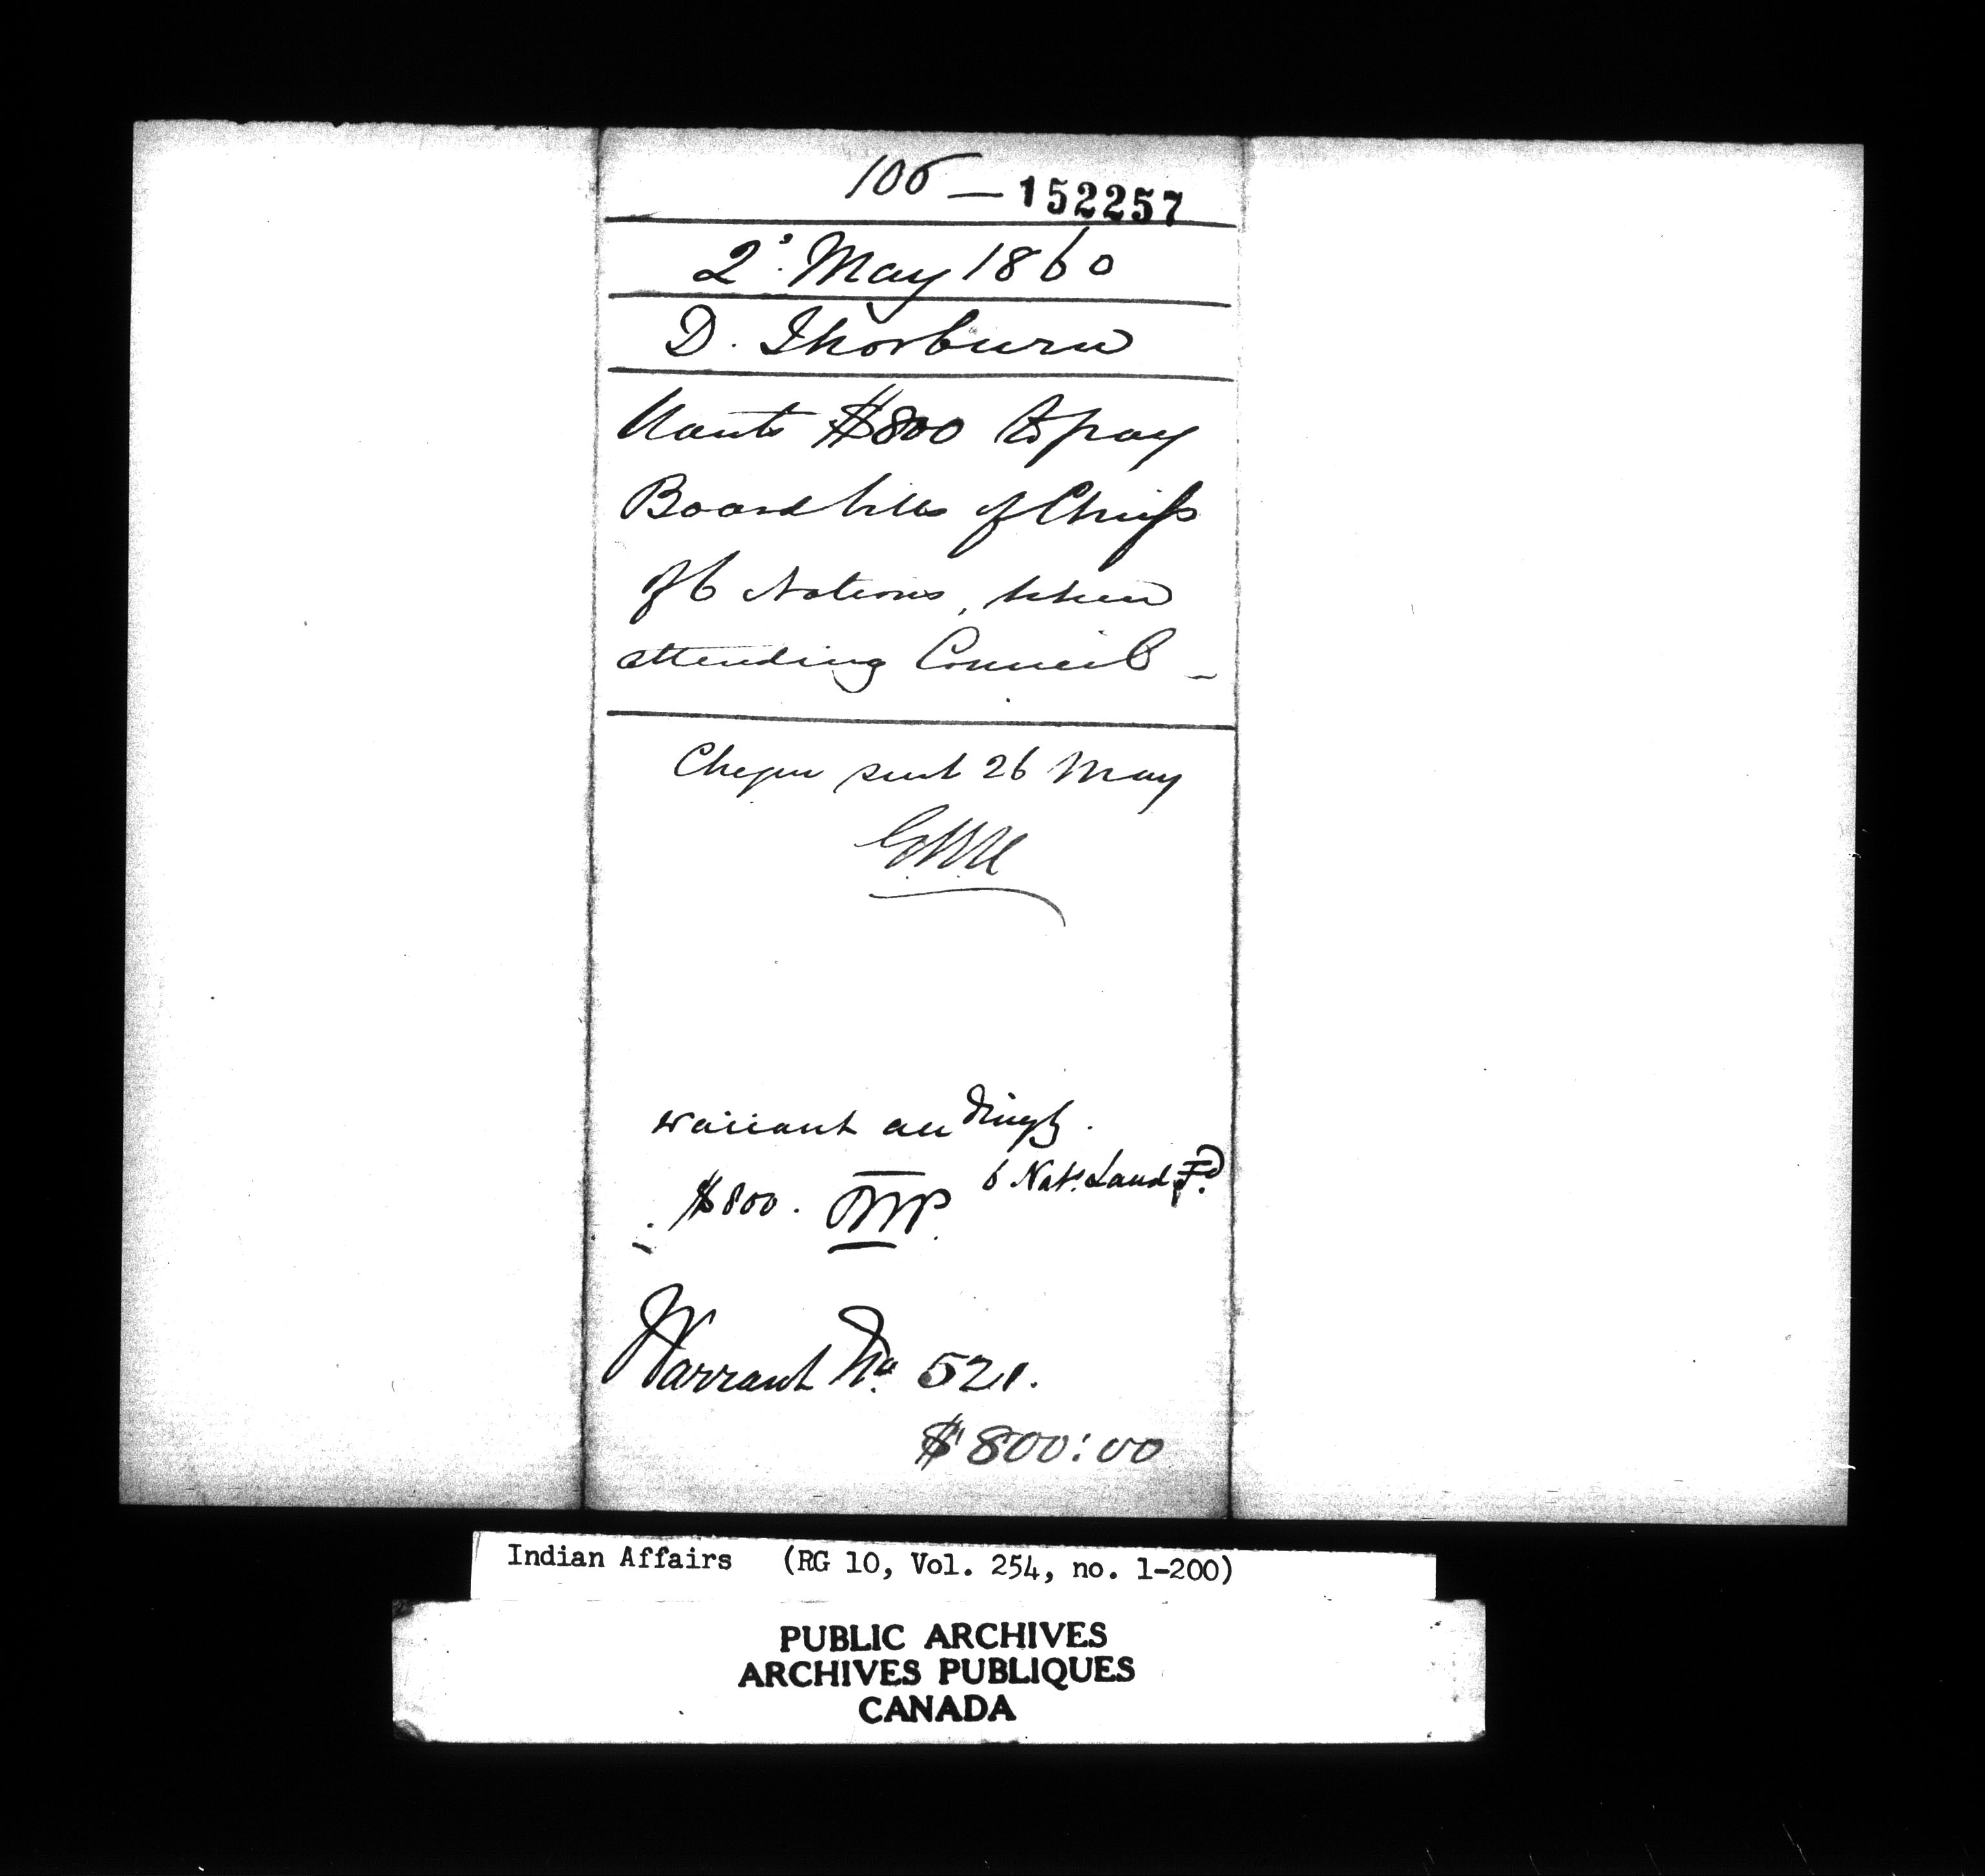 106 — 152257
2d. May 1860
D. Thorburn
Wants $800 to pay
Board bills of Chiefs
of 6 Nations, when
attending Council –
Cheque sent 26 May
warrant accdingly.
$800. 6 Nat. Land Fd.
Warrant No. 521.
$800:00
Indian Affairs (RG 10, Vol. 254, no. 1-200)
PUBLIC ARCHIVES
ARCHIVES PUBLIQUES
CANADA